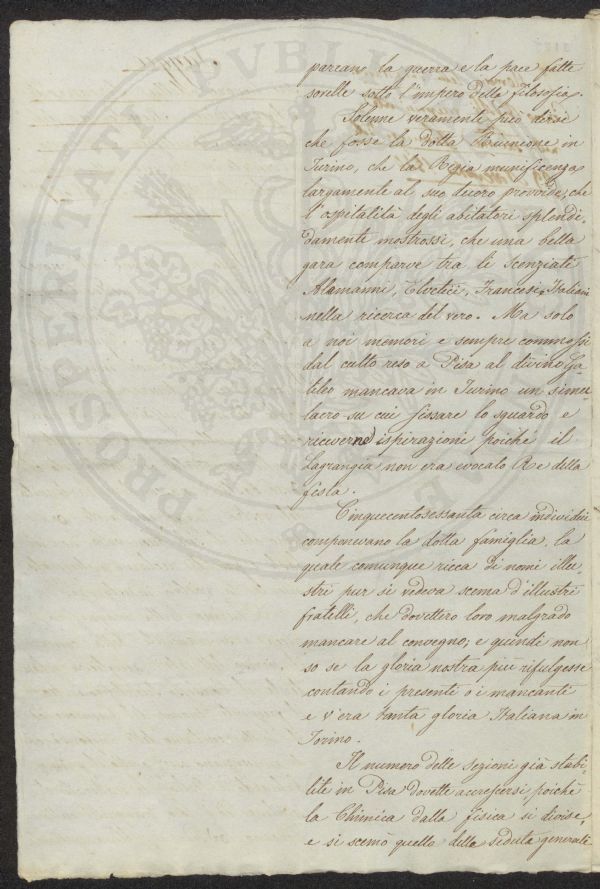 pareano la guerra e la pace fatte
sorelle sotto l'impero della Filosofia.
Solenne veramente può dirsi
che fosse la dotta Riunione in
Turino, che la Regia munificenza
largamente al suo decoro provvide, che
l'ospitalità degli abitatori splendi-
damente mostrossi, che una bella
gara comparve tra li scenziati
Alamanni, Elvetici, Francesi, Italiani
nella ricerca del vero. Ma solo
a noi memori e sempre commossi
dal culto reso a Pisa al divino Ga-
lileo mancava in Turino un simu
lacro su cui fissare lo sguardo e
riceverne ispirazioni poichè il
Lagrangia non era evocato Re della
festa.
Cinquecentosessanta circa individui
componevano la dotta famiglia, la
quale comunque ricca di nomi illu-
stri pur si vedeva scema d'illustri
fratelli, che dovettero loro malgrado
mancare al convegno; e quindi non
so se la gloria nostra più rifulgesse
contando i presenti o i mancanti
e v'era tanta gloria Italiana in
Torino.
Il numero delle sezioni già stabi-
lite in Pisa dovette accrescersi poichè
la Chimica dalla fisica si divise,
e si scemò quello delle sedute generali
PROSPERITATI PUBLI